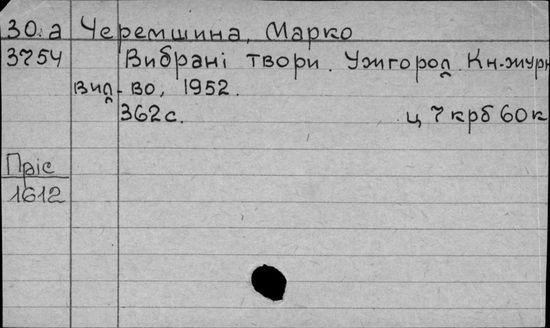 30.а Черемшина, Марко
3754 Вибрані твори. Ужгород. Кн.-журн
вид-во, 1952.
362с. ц 7 крб 60к
Пріс
1612